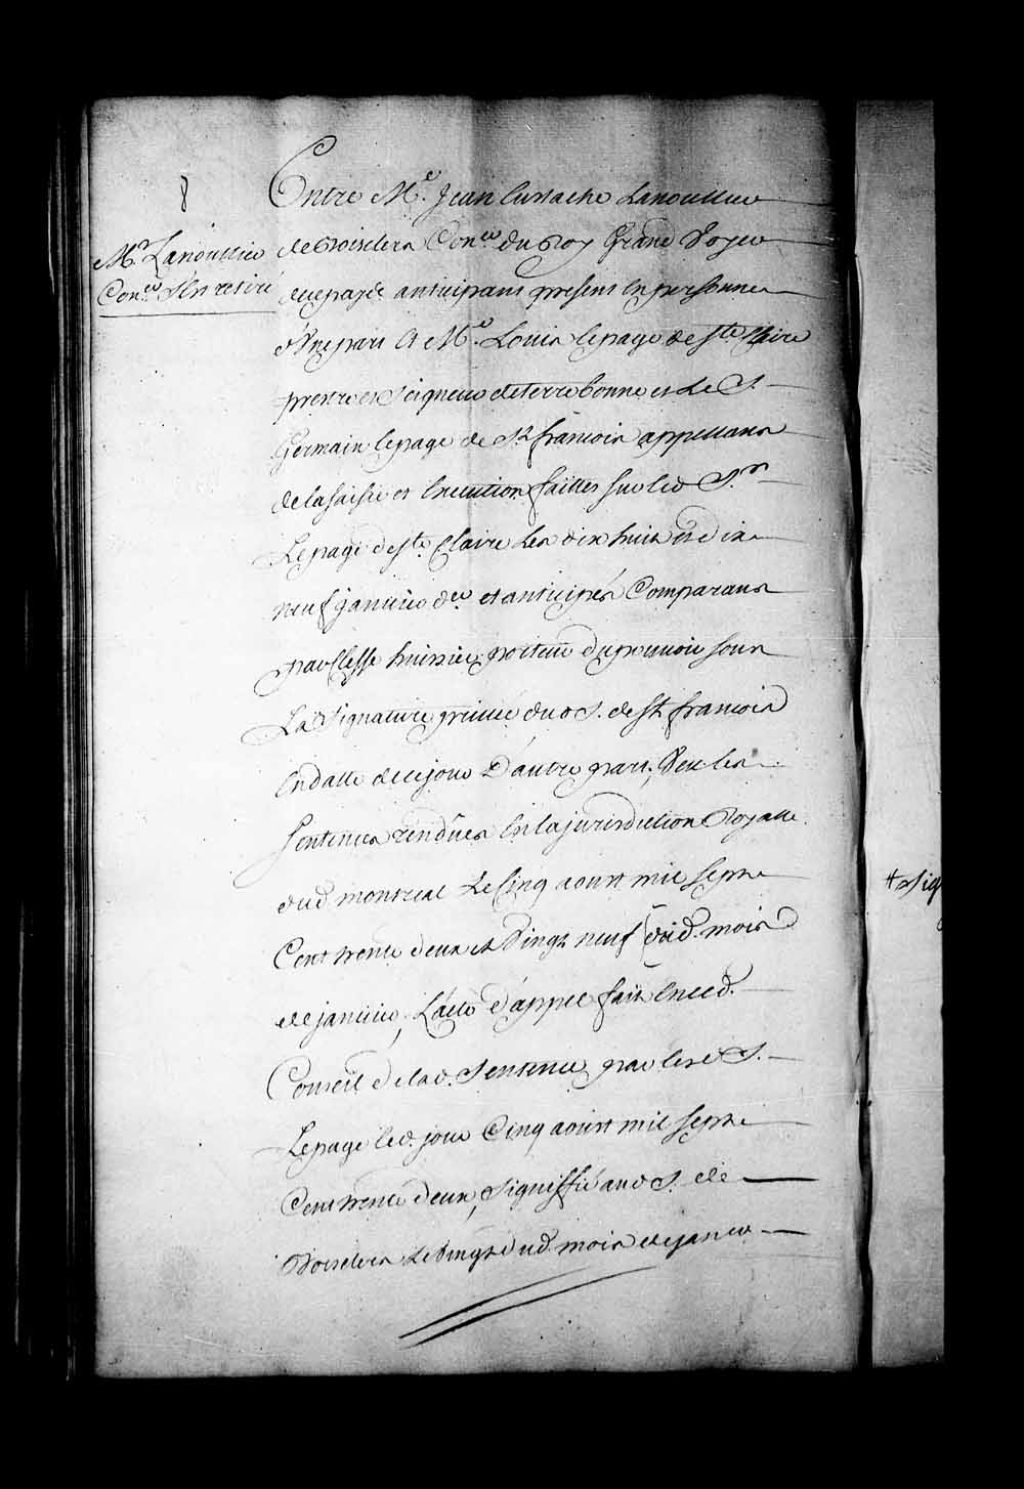 8
Mr. Lanoullier
Coner. s'Est retiré
Entre Me. Jean Eustache Lanoullier
de Boisclerc Coner. du Roy Grand Voyer
de ce païs anticipant present En personne
d'Une part Et Me. Louis lepage de Ste. Claire
prestre et seigneur de terrebonne et Le S.
Germain lepage de St. francois appellans
de la saisie et Execution faittes sur led. Sr.
Lepage de Ste. Claire Les dix huit et dix
neuf janvier der. et anticipés Comparans
par Clesse huissier porteur du pouvoir sous
La signature privée dud S. de St. francois
En datte de ce jour D'autre part, Veu les
sentences rendües En la jurisdiction Royalle
dud montreal Le Cinq aoust mil sept
Cent trente deux et Vingt neuf dud. mois
de janvier, L'acte d'appel fait En ced.
Conseil de lad. sentence par lesd S.
Lepage led. jour Cinq aoust mil sept
Cent trente deux, signiffié aud S. de
Boisclerc Le Vingt dud. mois de janer
+ sig